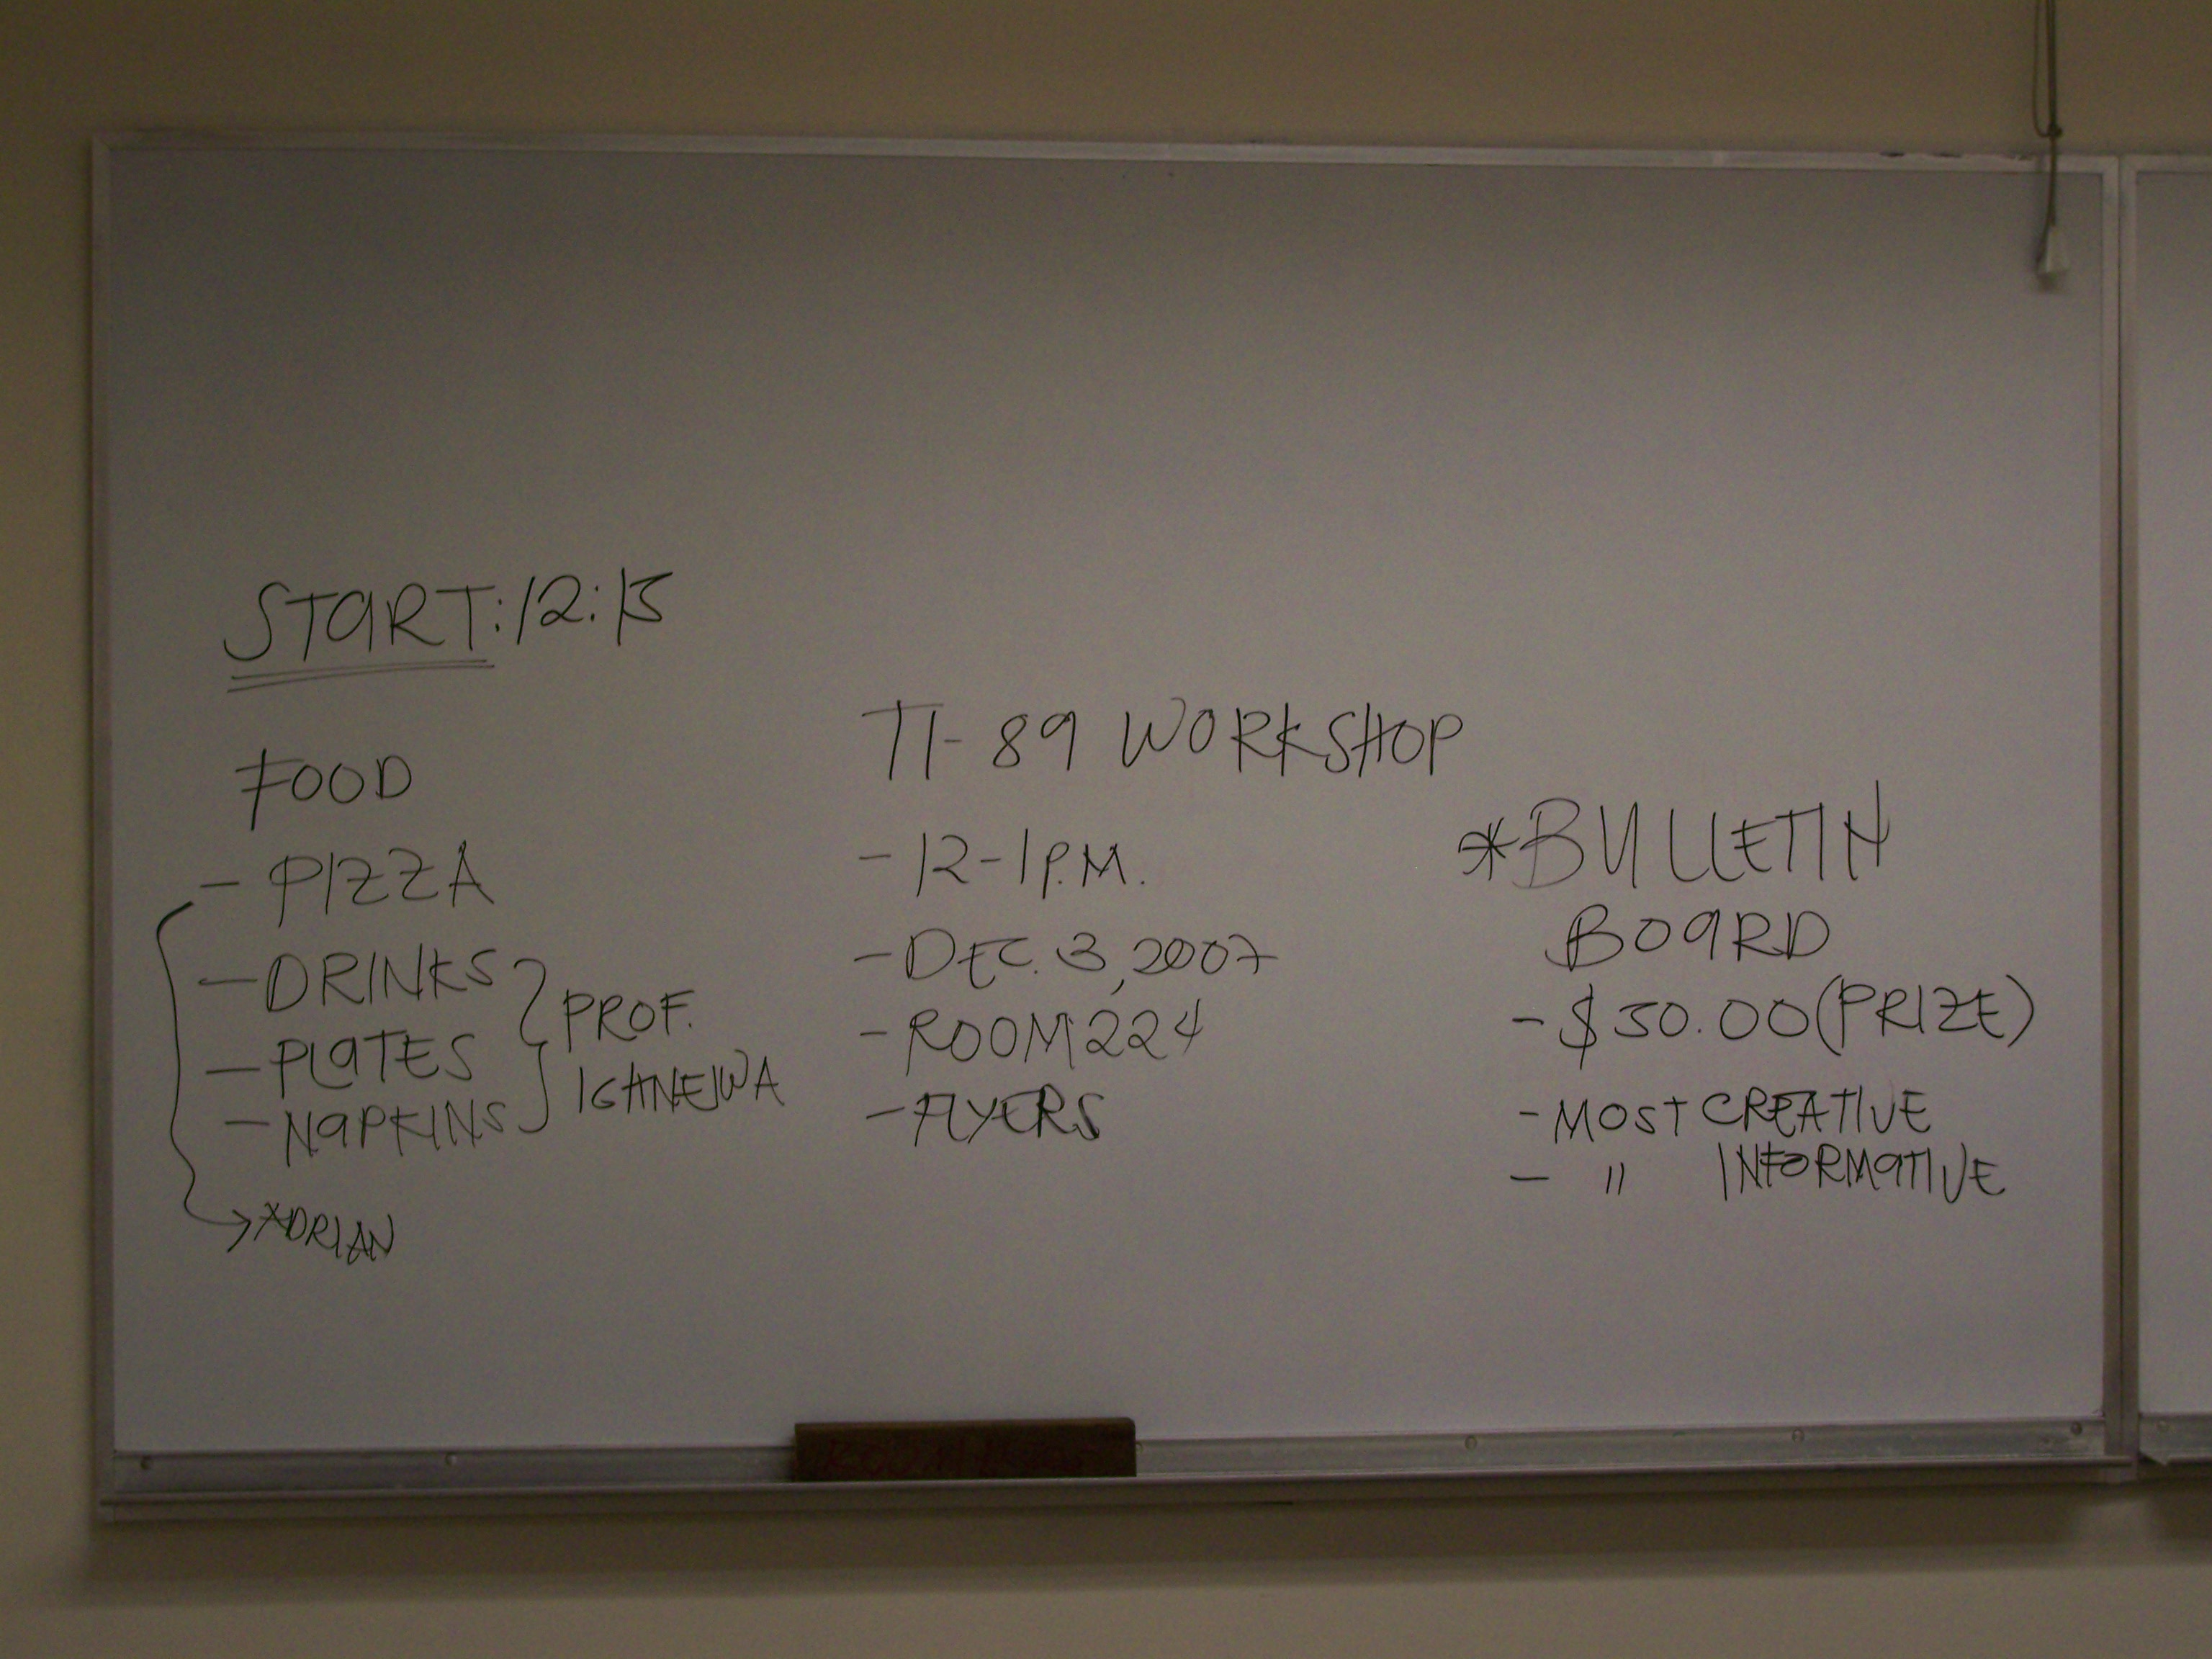 START: 12:15
FOOD
- PIZZA
- DRINKS
- PLATES
- NAPKINS
PROF.
IGHNEIWA
ADRIAN
TI-89 WORKSHOP
- 12-1 P.M.
- DEC. 3, 2007
- ROOM 224
- FLYERS
*BULLETIN
BOARD
- $50.00 (PRIZE)
- MOST CREATIVE
- " INFORMATIVE